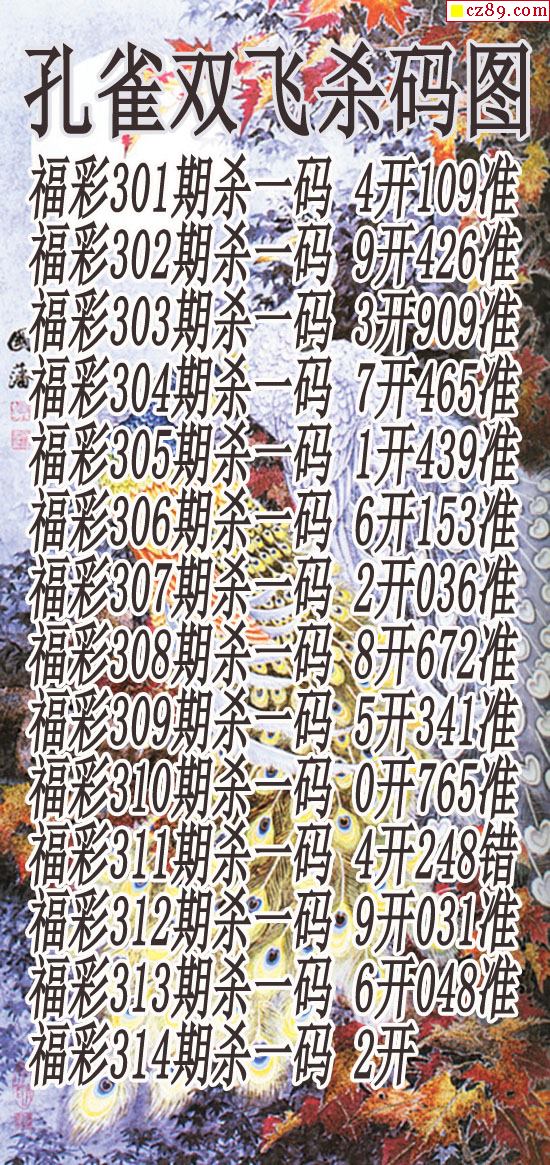 cz89.com
孔雀双飞杀码图
福彩301期杀一码 4开109准
福彩302期杀一码 9开426准
福彩303期杀一码 3开909准
福彩304期杀一码 7开465准
福彩305期杀一码 1开439准
福彩306期杀一码 6开153准
福彩307期杀一码 2开036准
福彩308期杀一码 8开672准
福彩309期杀一码 5开341准
福彩310期杀一码 0开765准
福彩311期杀一码 4开248错
福彩312期杀一码 9开031准
福彩313期杀一码 6开048准
福彩314期杀一码 2开